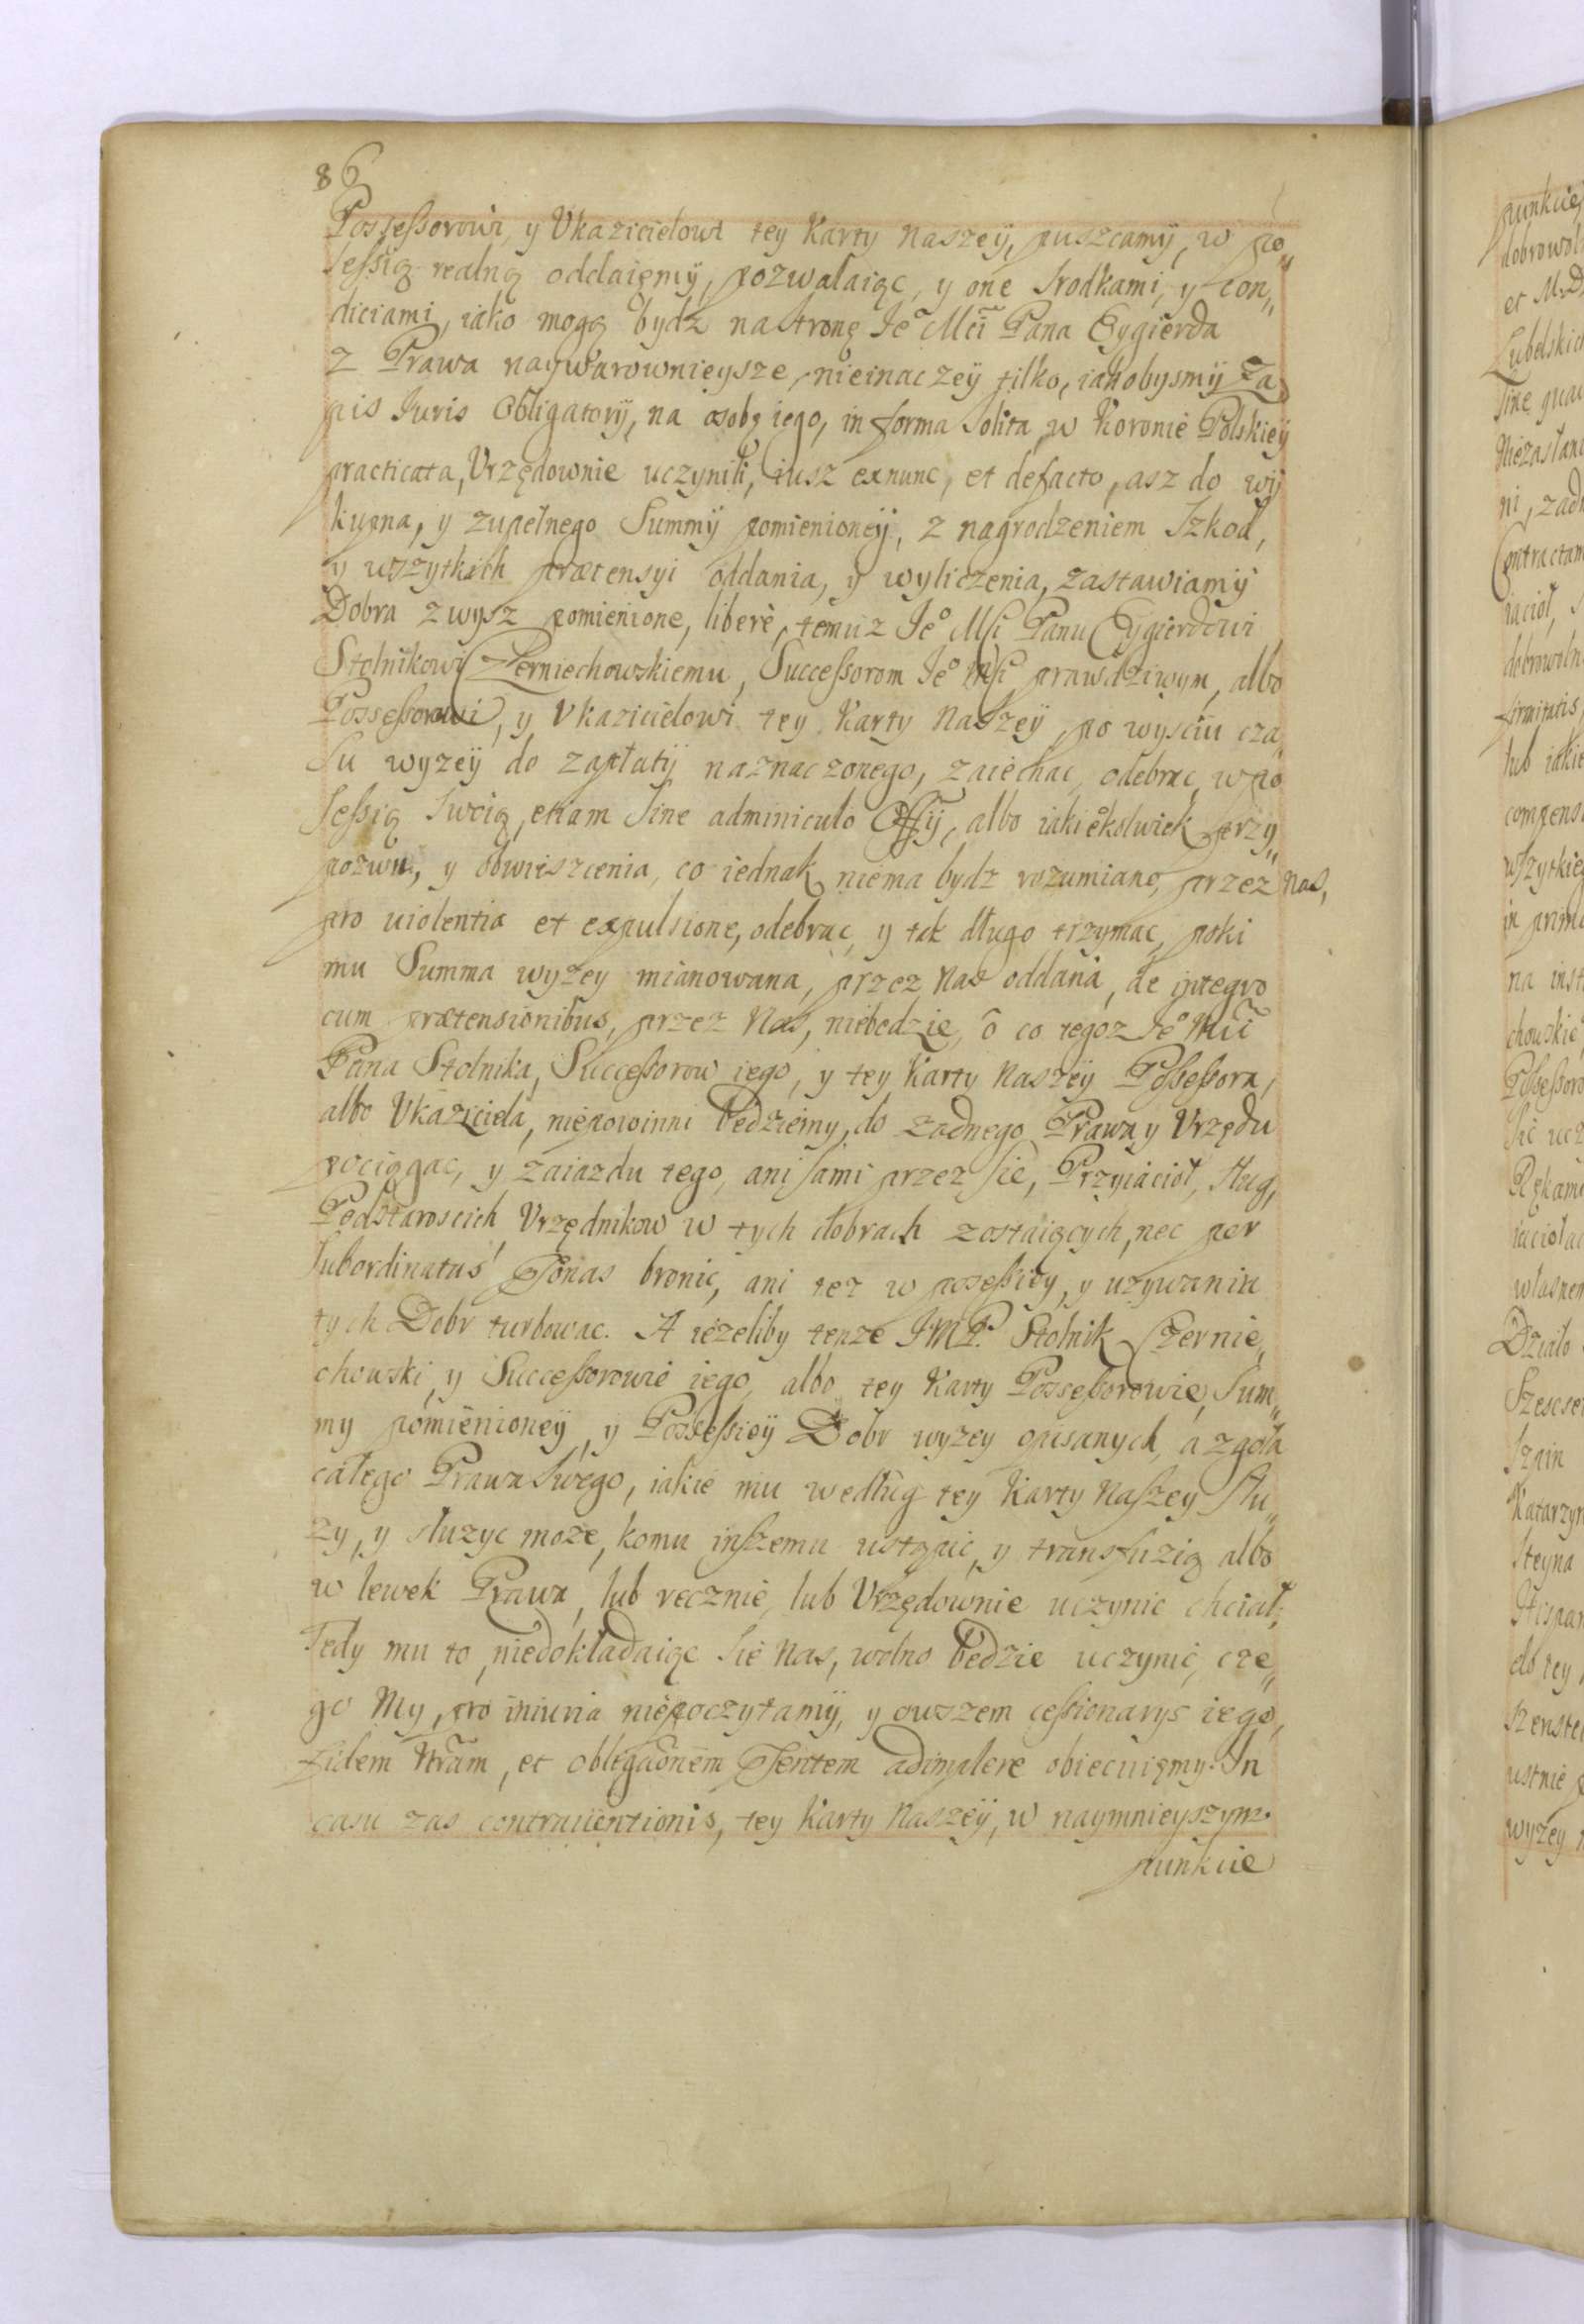 86
Possessorowi, y Vkazicielowi tey Karty Naszeÿ, puszcamÿ, w po„
sessią realną oddaięmÿ, pozwalaiąc, y one srodkami, y con„
diciami, iako mogą bydz na stronę Ieº Mci Pana Cygierda
z Prawa naywarownieysze, nieinaczeÿ tilko, iakobysmÿ Za
pis Iuris Obligatorÿ, na osobę iego, in forma solita, w Koronie Polskieÿ
practicata, Vrzędownie uczynili, iusz exnunc, et defacto, asz do wÿ
kupna, y zupełnego Summÿ pomienioneÿ, z nagrodzeniem szkod,
y wszytkich prætensyi oddania, y wyliczenia, zastawiamÿ
Dobra zwysz pomienione, liberè, temuz Ieº Msci Panu Cygierdowi
Stolnikowi Czerniechowskiemu, Successorom Ieº Msci prawdziwym, albo
Possessorowi, y Vkazicielowi tey Karty Naszeÿ, po wysciu cza„
su wyzeÿ do zapłatÿ naznaczonego, zaiechac, odebrac, w po
sessią swoią, etiam sine adminiculo Offÿ, albo iakiekolwiek przy„
pozwu, y obwiszcenia, co iednak niema bydz rozumiano, przez Nas,
pro uiolentia et expulsione, odebrac, y tak długo trzymac, poki
mu Summa wyzey mianowana, przez Nas oddana, de integro
cum prætensionibus, przez Nas, niebędzie, o co tegoz Ieº Mci
Pana Stolnika, Successorow iego, y tey Karty Naszeÿ Possessora,
albo Vkaziciela, niepowinni będziemy, do zadnego Prawa y Vrzędu
pociągac, y zaiazdu tego, ani sami przez sie, Przyiacioł, sług,
Podstaroscich, Vrzędnikow w tych dobrach zostaiących, nec per
subordinatas Psonas bronic, ani tez w possessiey, y uzywaniu
tych Dobr turbowac. A iezeliby tenze I M P. Stolnik Czernie„
chowski, y Successorowie iego, albo tey Karty Possessorowie, Sum„
my pomienioneÿ, y Possessieÿ Dobr wyzey opisanych, a zgoła
całego Prawa swego, iakie mu według tey Karty Naszey słu„
zy, y słuzyc moze, komu inszemu ustąpic, y transfuzią albo
w lewek Prawa, lub recznie, lub Vrzędownie uczynic chciał,
Tedy mu to, niedokładaiąc sie Nas, wolno będzie uczynic, cze„
go My, pro iniuria niepoczytamÿ, y owszem cessionarÿs iego,
fidem Nram, et obligaonem Psentem adimplere obiecuięmy. In
casu zas contrauentionis, tey Karty Naszeÿ, w naymnieyszym
punkcie